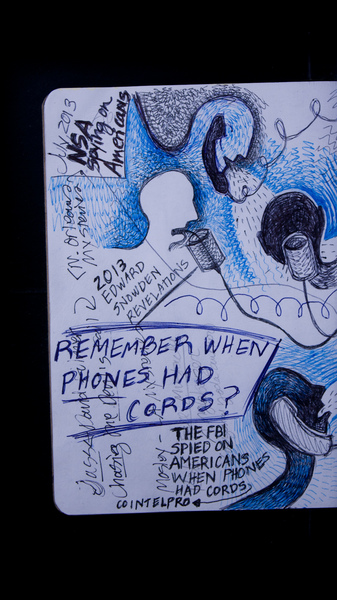 July 2013
NSA
spying on
Americans
2013
EDWARD
SNOWDEN
REVELATIONS
REMEMBER WHEN
PHONES HAD
CORDS?
Chasing the
THE FBI
SPIED ON
AMERICANS
WHEN PHONES
HAD CORDS
COINTELPRO